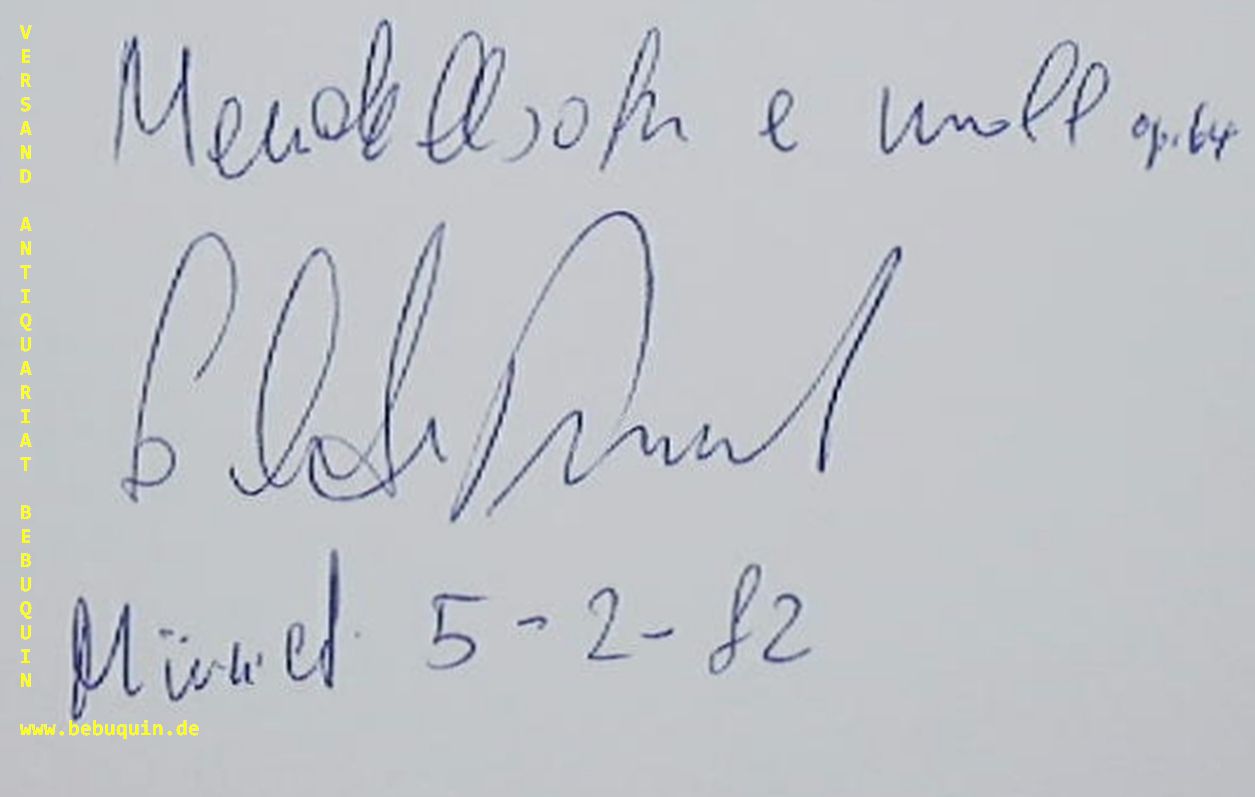 Mendelssohn e moll op. 64
München 5-2-82
VERSAND ANTIQUARIAT BEBUQUIN
www.bebuquin.de